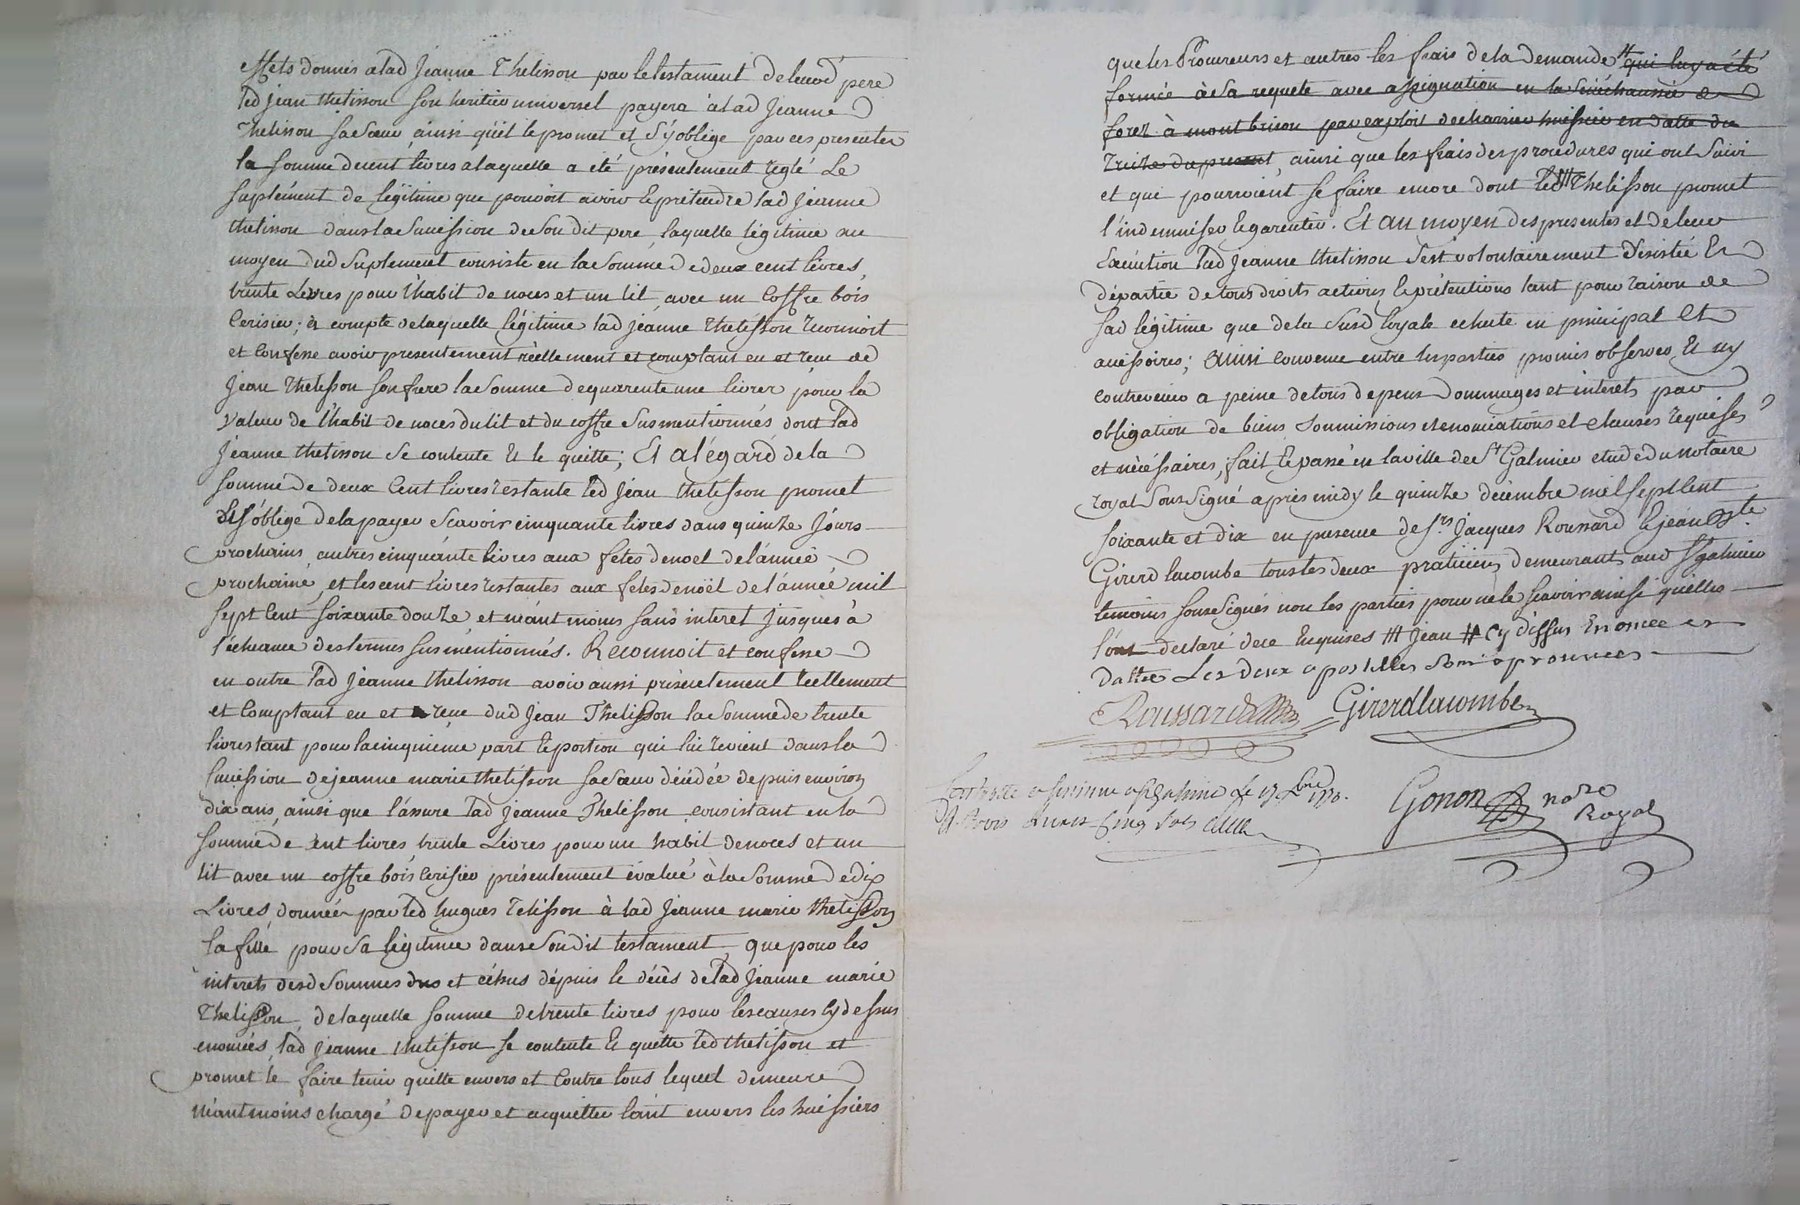 effets donnés a lad Jeanne Thelisson par le testament de leurd pere
led jean thelisson son heritier universel payera à lad Jeanne
Thelisson sa sœur ainsi qu'il le promet et s'y oblige par ces presentes
la somme de cent livres a laquelle a été présentement reglé le
suplément de légitime que pouvoit avoir & prétendre lad Jeanne
thelisson dans la succession de son dit pere, laquelle légitime au
moyen dud suplement consiste en la somme de deux cent livres,
trente Livres pour l'habit de noces et un lit, avec un Coffre bois
Cerisier; à compte de laquelle légitime lad jeanne thelisson reconnoit
et Confesse avoir presentement réellement et comptant eu et reçu de
Jean thelisson son frere la somme de quarente une livres pour la
valeur de l'habit de noces du lit et du coffre susmentionnés dont lad
Jéanne thelisson se contente & le quitte; Et a l'égard de la
somme de deux Cent livres restante led jéan thelisson promet
& s'oblige de la payer scavoir cinquante livres dans quinze Jours
prochains, autres cinquante livres aux fetes de noel de l'année
prochaine, et les cent livres restantes aux fetes de noël de l'année mil
sept Cent soixante douze et néantmoins sans interet jusques à
l'écheance des termes susmentionnés. Reconnoit et confesse
en outre lad Jeanne thelisson avoir aussi présentement reellement
et Comptant eu et reçu dud Jean Thelisson la somme de trente
livres tant pour la cinquieme part & portion qui lui revient dans la
succession de jeanne marie thelisson sa sœur décédée depuis environ
dix ans, ainsi que l'assure lad jeanne Thelisson consistant en la
somme de Cent livres trente Livres pour un habit de noces et un
lit avec un coffre bois cerisier présentement évalué à la somme de dix
Livres, donnée par led hugues Telisson à lad jeanne marie thelisson
sa fille pour sa légitime dans son dit testament, que pour les
interets desd sommes dus et échus dépuis le décès de lad jeanne marie
Thelisson, de laquelle somme de trente livres pour les causes cy dessus
enoncées, lad jeanne thelisson se contente & quitte led thelisson et
promet le faire tenir quitte envers et Contre tous lequel demeure
néantmoins chargé de payer et acquitter tant envers les huissiers
que les Procureurs et autres les frais de la demande # qui luy a été
formée à sa requete avec assignation en la sénéchaussée de
forez à montbrison par exploit de charrier huissier en datte du
treize du present, ainsi que les frais des procedures qui ont suivi
et que pourroient se faire encore dont led ### Thelisson promet
l'indemniser & garentir. Et au moyen des presentes et de leur
Exécution lad jeanne thelisson s'est volontairement Désistée &
départie de tous droits actions & prétentions tant pour raison de
sad légitime que de la susd loyale echute en principal et
accessoires; ainsi convenu entre les parties promis observer, & n'y
contrevenir a peine de tous depens dommages et interets par
obligation de biens soumissions renonciations et clauses requises
et nécéssaires, fait & passé en la ville de St Galmier etude du notaire
royal soussigné après midy le quinze décembre mil sept Cent
soixante et dix en presence de Srs Jacques Roussard & jean Bte
Girerd lacombe tous les deux praticiens demeurants aud St galmier
temoins soussignés non les parties pour ne le scavoir ainsi qu'elles
l'ont declaré de ce Enquises ### Jean # cy dessus Enoncée et
dattée Les deux apostilles sont approuvées
Roussard Girerdlacombe
Controllé a St galmier le 17 Xbre 1770.
Gonon nore
Royal